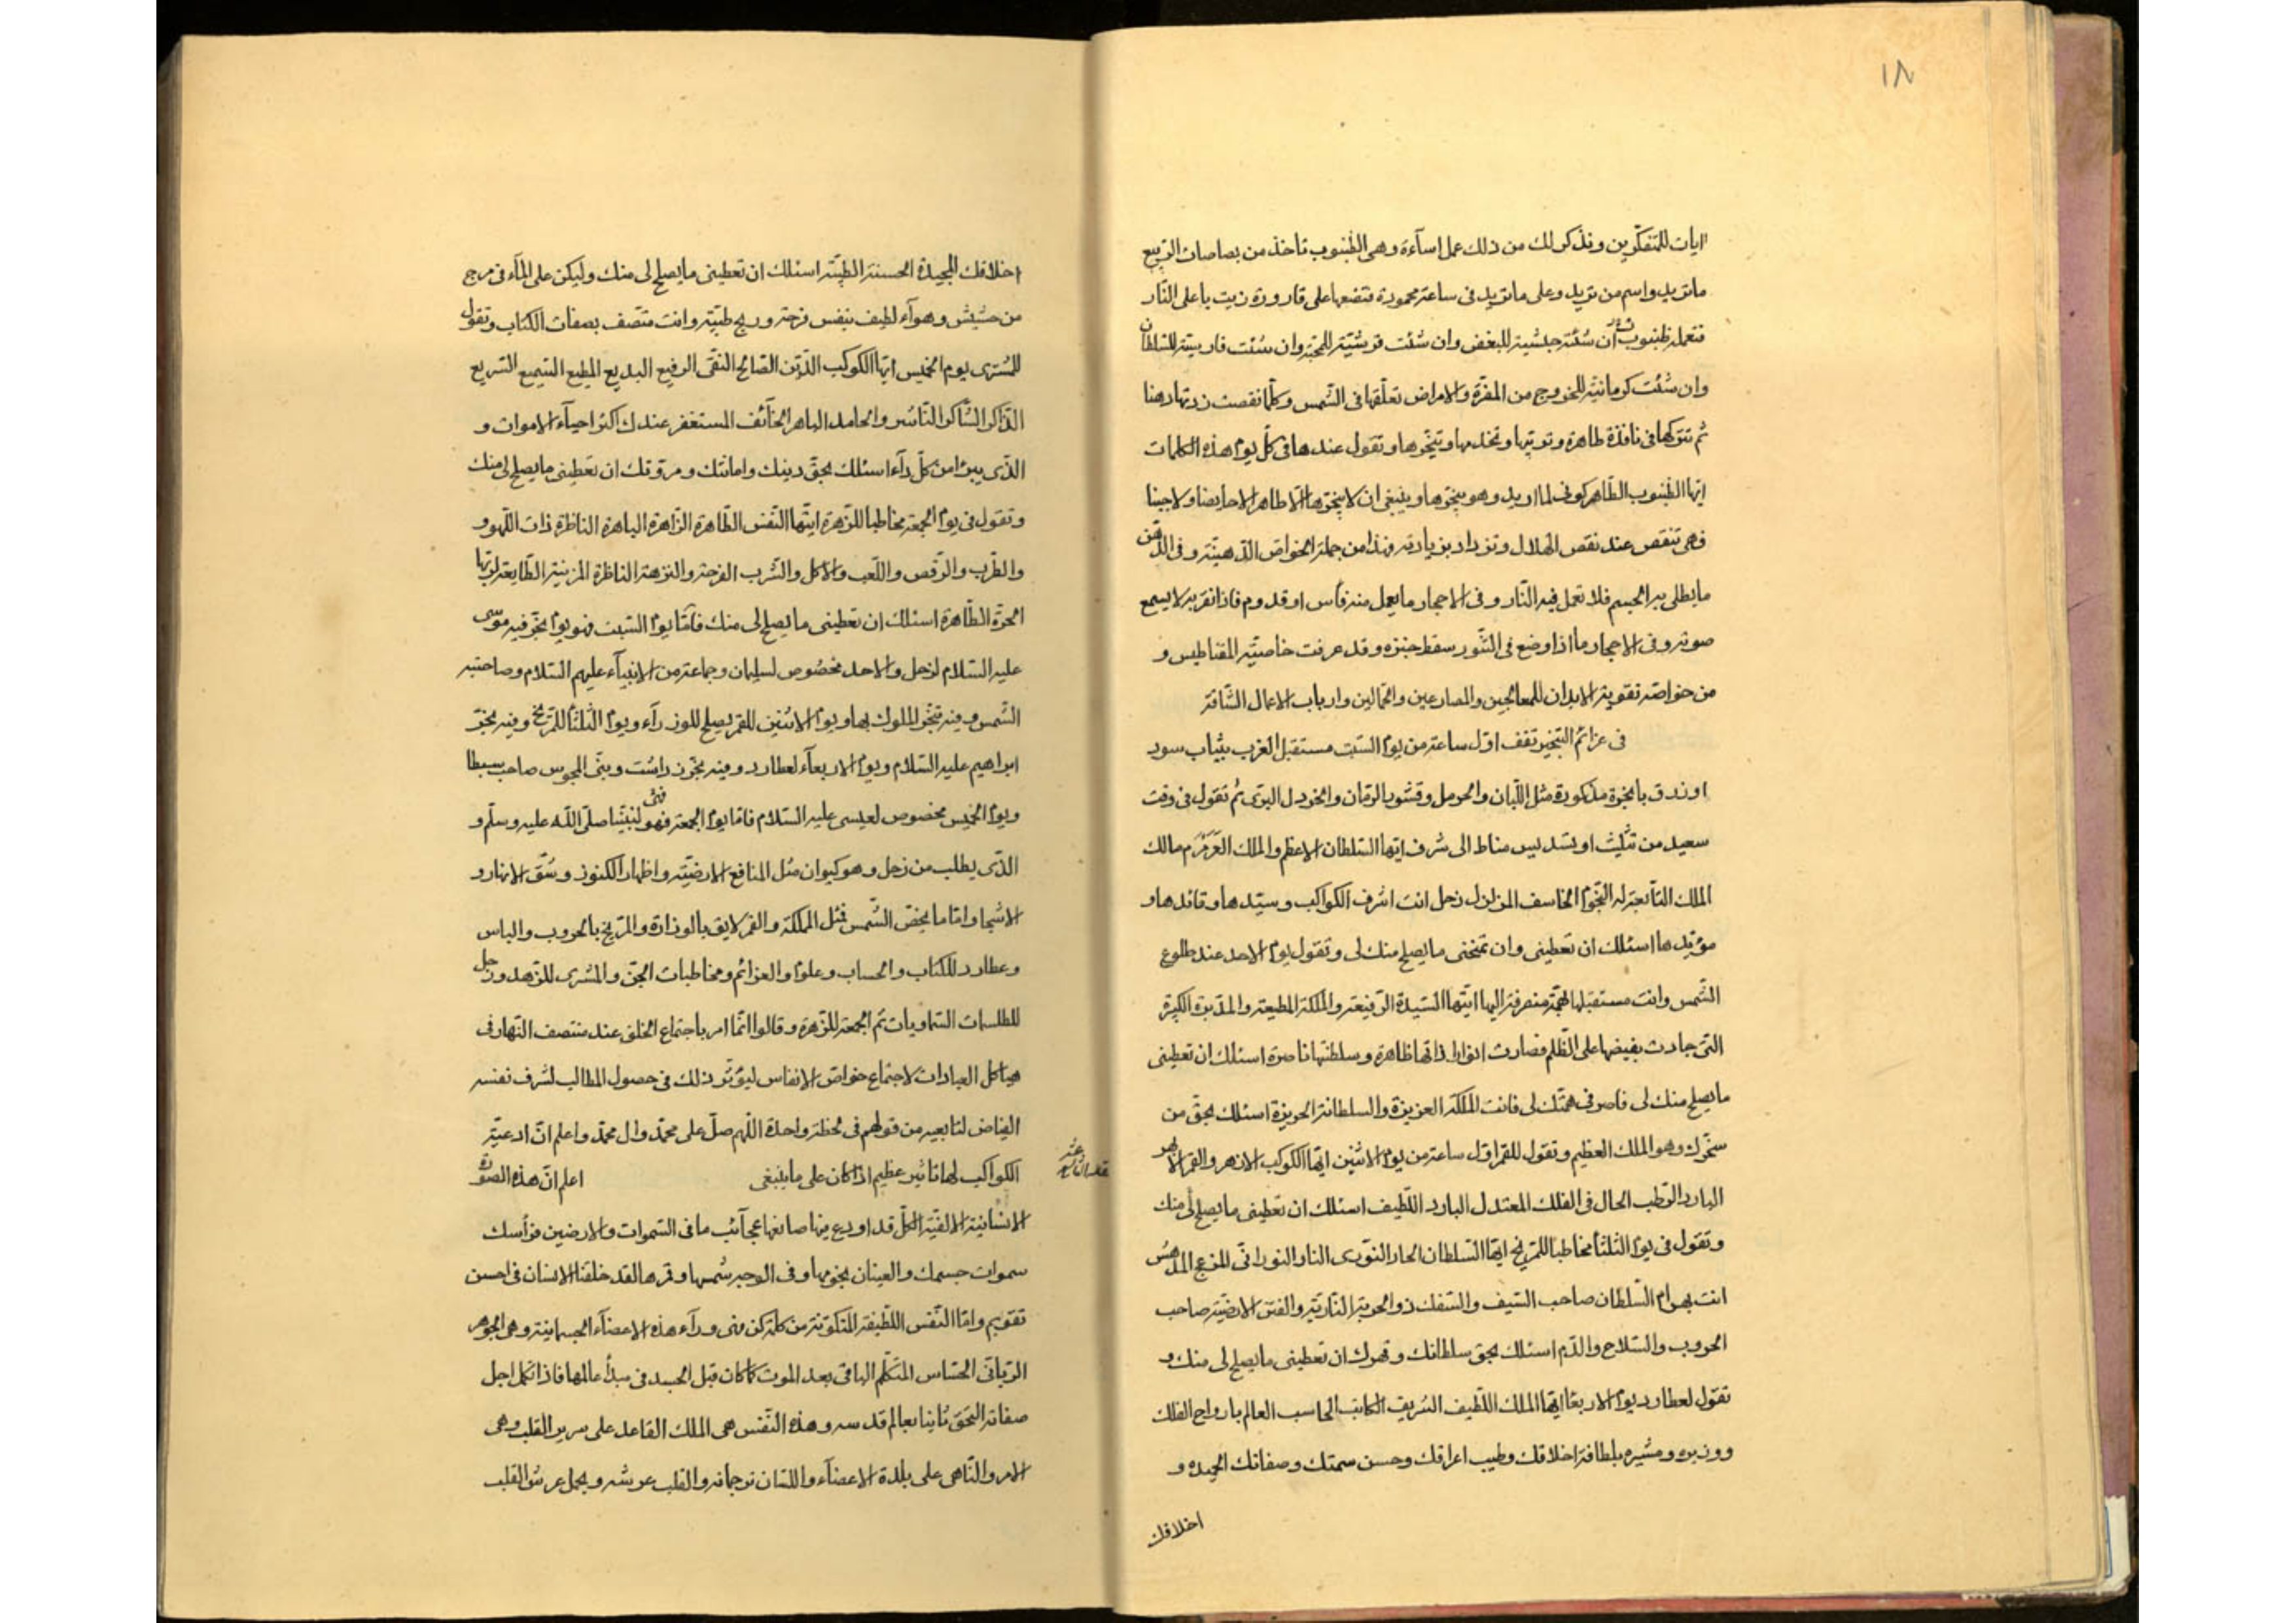 ١٨
ايات للمتفكرين ونذكر لك من ذلك عمل اساءة وهى الطنبوب تاخذ من بصاصات الربيع
ما تريد واسم من تريد وعلى ما تريد فى ساعة محمودة فتضعها على قارورة زيت يا على النار
فتعمله طنبوب ان شئت حبشية للبغض وان شئت قرشية للمحبة وان شئت فارسية للسلطان
وان شئت كرمانية للخروج من المضرة والامراض تعلقها فى الشمس وكلما نقصت زدتها دهنا
ثم تتركها فى نافذة طاهرة وتوتيها وتخدمها وتبخرها وتقول عندها فى كل يوم هذه الكلمات
ايها الطنبوب الطاهر كونى لما اريد وهو يبخرها وينبغى ان لا يبخرها الا طاهر لا حايضا ولا جنبا
فهى تنقص عند نقص الهلال وتزداد بزيادته فهذا من جملة الخواص الذهنية وفى الدهن
ما يطلى به الجسم فلا تعمل فيه النار وفى الاحجار ما يعمل منه فاس او قدوم فاذا نقر به لا يسمع
صوته وفى الاحجار ما اذا وضع فى التنور سقط خبزه وقد عرفت خاصية المقناطيس و
من خواصه تقوية الابدان للمعالجين والمصارعين والحمالين وارباب الاعمال الشاقة
فى عزائم التبخير تقف اول ساعة من يوم السبت مستقبل الغرب بثياب سود
او زرق بابخرة مذكورة مثل اللبان والحرمل وقشور الرمان والخردل البرى ثم تقول فى وقت
سعيد من تثليث او تسديس مناط الى شرف ايها السلطان الاعظم والملك العرمرم مالك
الملك التابعة له النجوم الخاسف المزلزل زحل انت اشرف الكواكب وسيدها وقائدها و
مؤيدها اسئلك ان تعطينى وان تمنحنى ما يصلح منك لى وتقول يوم الاحد عند طلوع
الشمس وانت مستقبلها بهمة منصرفة اليها ايتها السيدة الرفيعة والملكة المطيعة والمدبرة الكبيرة
التى جادت بفيضها على الظلم فصارت انوار ذاتها ظاهرة وسلطنتها ناصرة اسئلك ان تعطينى
ما يصلح منك لى فاصرفى همتك لى فانت الملكة العزيزة والسلطانة الحريزة اسئلك بحق من
سخرك وهو الملك العظيم وتقول للقمر اول ساعة من يوم الاثنين ايها الكوكب الازهر والقمر الابهر
البارد الرطب الحال فى الفلك المعتدل البارد اللطيف اسئلك ان تعطينى ما يصلح لى منك
وتقول فى يوم الثلثا مخاطبا للمريخ ايها السلطان الحار النورى النار النورانى المزعج المدهش
انت بهرام السلطان صاحب السيف والسفك ذو الحربة النارية والفتن الارضية صاحب
الحروب والسلاح والدم اسئلك بحق سلطانك وقهرك ان تعطينى ما يصلح لى منك و
تقول لعطارد يوم الاربعا ايها الملك اللطيف الشريف الكاتب الحاسب العالم بارواح الفلك
ووزيره ومشيره بلطافة اخلاقك وطيب اعراقك وحسن سمتك وصفاتك الحميده و
اخلاقك
اخلاقك المجيدة الحسنة الطيبة اسئلك ان تعطينى ما يصلح لى منك وليكن على الماء فى مرج
من حشيش وهواء لطيف بنفس فرحة وريح طيبة وانت متصف بصفات الكتاب وتقول
للمشترى يوم الخميس ايها الكوكب الدين الصالح النقى الرفيع البديع المطيع السميع السريع
الذاكر الشاكر الناشر والحامد الباهر الخائف المستغفر عندك اكثر احياء الاموات و
الذى يبرء من كل داء اسئلك بحق دينك وامانتك ومروتك ان تعطينى ما يصلح لى منك
وتقول فى يوم الجمعة مخاطبا للزهرة ايتها النفس الطاهرة الزاهرة الباهرة الناظرة ذات اللهو و
والطرب والرقص واللعب والاكل والشرب الفرحة والنزهة الناظرة المزينة الطايعة لربها
الحرة الطاهرة اسئلك ان تعطينى ما يصلح لى منك فاما يوم السبت فهو يوم بخر فيه موسى
عليه السلام لزحل والاحد مخصوص لسليمان وجماعة من الانبياء عليهم السلام وصاحبته
الشمس وفيه تبخر الملوك بها ويوم الاثنين للقمر يصلح للوزراء ويوم الثلثا للمريخ وفيه بخر
ابراهيم عليه السلام ويوم الاربعاء لعطارد وفيه بخر زرادشت ونبى المجوس صاحب سبطا
ويوم الخميس مخصوص لعيسى عليه السلام فاما يوم الجمعة فهو لنبينا صلى الله عليه وسلم و
الذى يطلب من زحل وهو كيوان مثل المنافع الارضية واظهار الكنوز وشق الانهار و
الاشجار واما ما يخص الشمس فمثل المملكة والقمر لايق بالوزارة والمريخ بالحروب والباس
وعطارد للكتاب والحساب وعلوم والعزائم ومخاطبات الجن والمشترى للزهد وزحل
للطلسمات السماويات ثم الجمعة للزهرة وقالوا انما امر باجتماع الخلق عند منتصف النهار فى
هياكل العبادات لاجتماع خواص الانفاس ليؤثر ذلك فى حصول المطالب لشرف نفسه
الفياض لتابعيه من قولهم فى لحظة واحدة اللهم صل على محمد وال محمد واعلم ان ادعية
الكواكب لها تاثير عظيم اذا كان على ما ينبغى اعلم ان هذه الصورة
الانسانية الالفية الكل قد اودع فيها صانعها عجآئب ما فى السموات والارضين فرأسك
سموات جسمك والعينان نجومها وفى الوجه شمسها وقمرها لقد خلقنا الانسان فى احسن
تقويم واما النفس اللطيفة المتكونة من كلمة كن فهى ورآء هذه الاعضآء الجسمانية وهى الجوهر
الربانى الحساس المتكلم الباقى بعد الموت كما كان قبل الجسد فى مبدأ عالمها فاذا تكمل اجل
صفاته التحق ثانيا بعالم قدسه وهذه النفس هى الملك القاعد على سرير القلب وهى
الامر والناهى على بلدة الاعضآء واللسان ترجمانه والقلب عرشه ويحمل عرش القلب